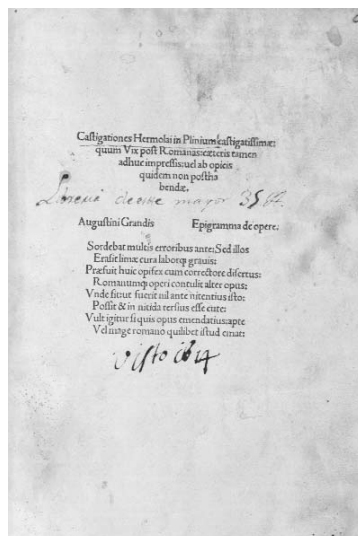 Castigationes Hermolai in Plinium castigatissimæ:
quum Vix post Romanas: cæteris tamen
adhuc impressis: uel ab opicis
quidem non posthabendæ.
bendæ.
Augustini Grandis Epigramma de opere.
Sordebat multis erroribus ante: Sed illos
Erasit limæ cura laborq; grauis:
Præfuit huic opifex cum correctore disertus:
Romanumq; operi contulit alter opus:
Vnde fit ut fuerit nil ante nitentius isto:
Possit & in nitida tersius esse cute:
Vult igitur si quis opus emendatius: apte
Vel mage romano quilibet istud emat:
visto